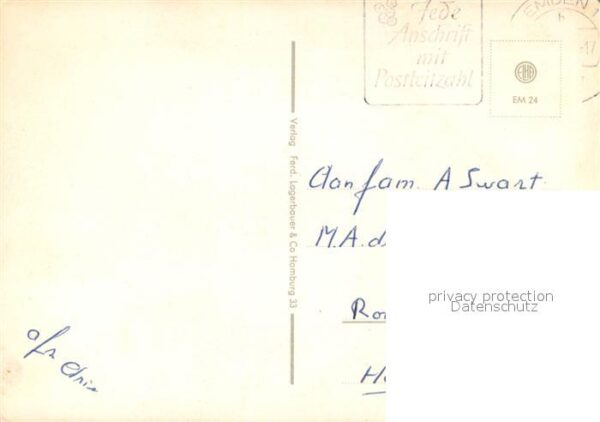 Jede
Anschrift
mit
Postleitzahl
EMDEN 1
h
17
EM 24
Verlag Ferd. Lagerbauer & Co Hamburg 33
Aan fam. A Swart
M.A. d
Ro
H
privacy protection
Datenschutz